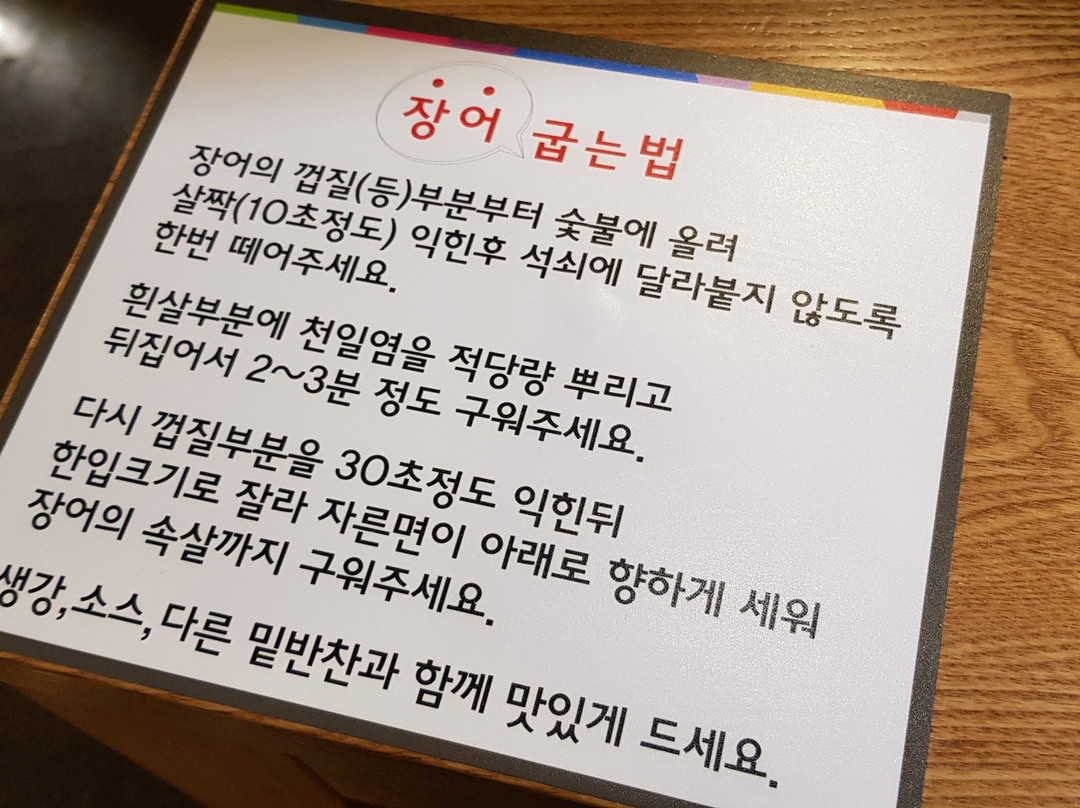 장어 굽는법
장어의 껍질(등)부분부터 숯불에 올려
살짝(10초정도) 익힌후 석쇠에 달라붙지 않도록
한번 떼어주세요.
흰살부분에 천일염을 적당량 뿌리고
뒤집어서 2~3분 정도 구워주세요.
다시 껍질부분을 30초정도 익힌뒤
한입크기로 잘라 자른면이 아래로 향하게 세워
장어의 속살까지 구워주세요.
생강,소스,다른 밑반찬과 함께 맛있게 드세요.